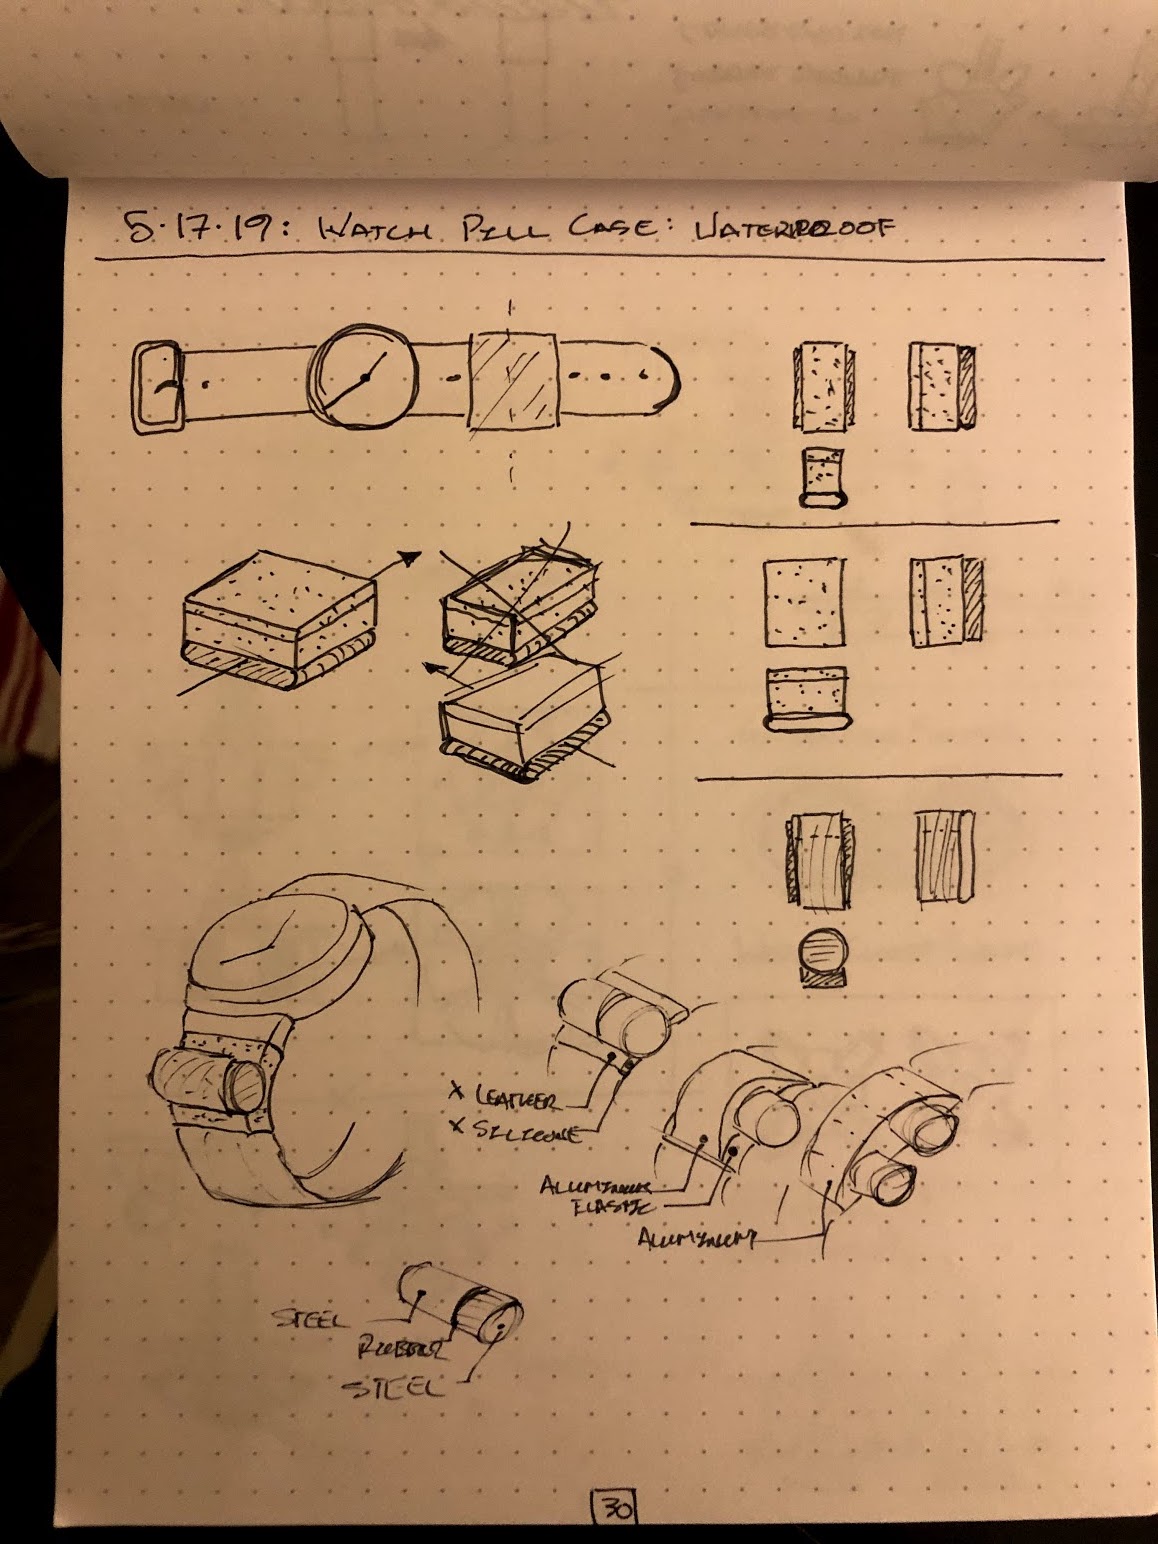 5·17·19: WATCH PILL CASE: WATERPROOF
X LEATHER
X SILICONE
ALUMINUM
ELASTIC
ALUMINUM
STEEL
RUBBER
STEEL
30